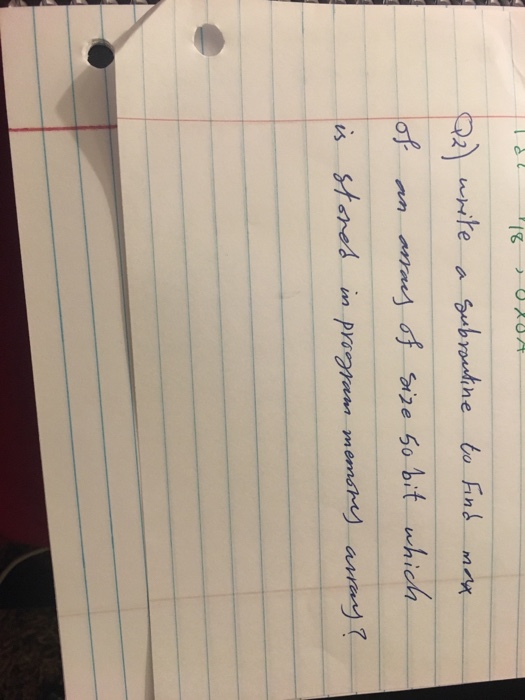 18, 0x0A
Q2) write a subroutine to find max
of an array of size 50 bit which
is stored in program memory array?